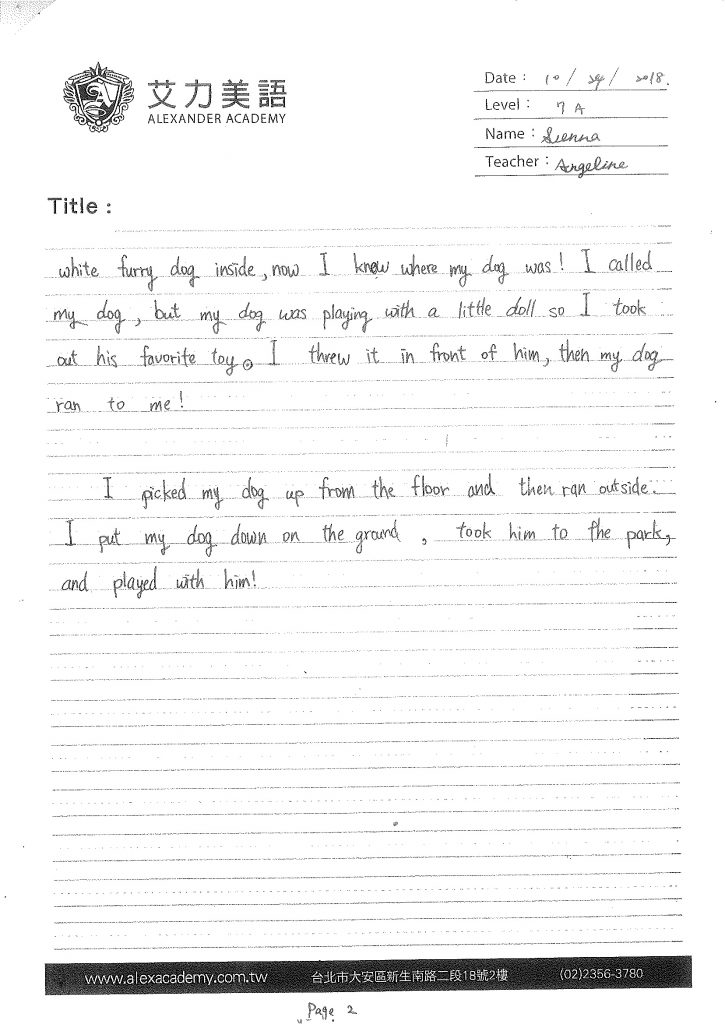 艾力美語
ALEXANDER ACADEMY
Date : 10 / 24 / 2018.
Level : 7 A
Name : Sienna
Teacher : Angeline
Title :
white furry dog inside, now I know where my dog was! I called
my dog, but my dog was playing with a little doll so I took
out his favorite toy。I threw it in front of him, then my dog
ran to me!
I picked my dog up from the floor and then ran outside.
I put my dog down on the ground, took him to the park,
and played with him!
www.alexacademy.com.tw 台北市大安區新生南路二段18號2樓 (02)2356-3780
Page 2